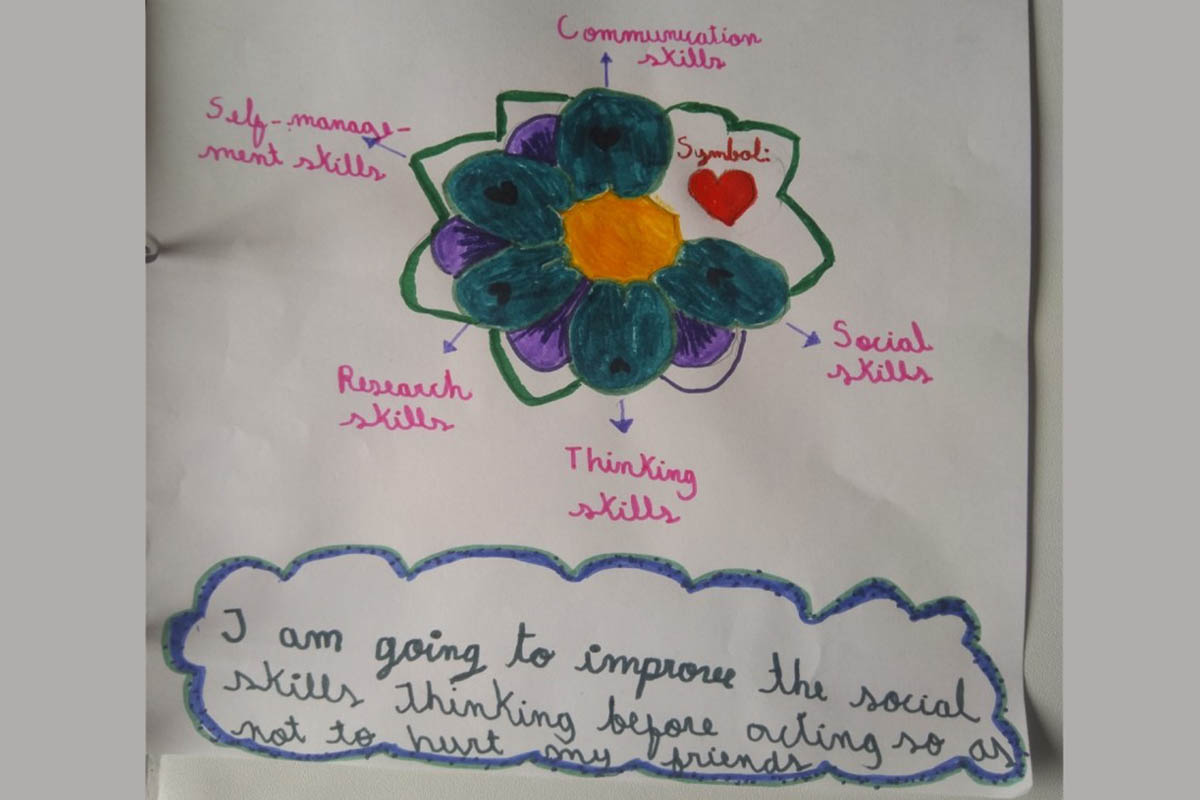 Communication
skills
Self-manage-
ment skills
Symbol:
Social
skills
Research
skills
Thinking
skills
I am going to improve the social
skills Thinking before acting so as
not to hurt my friends